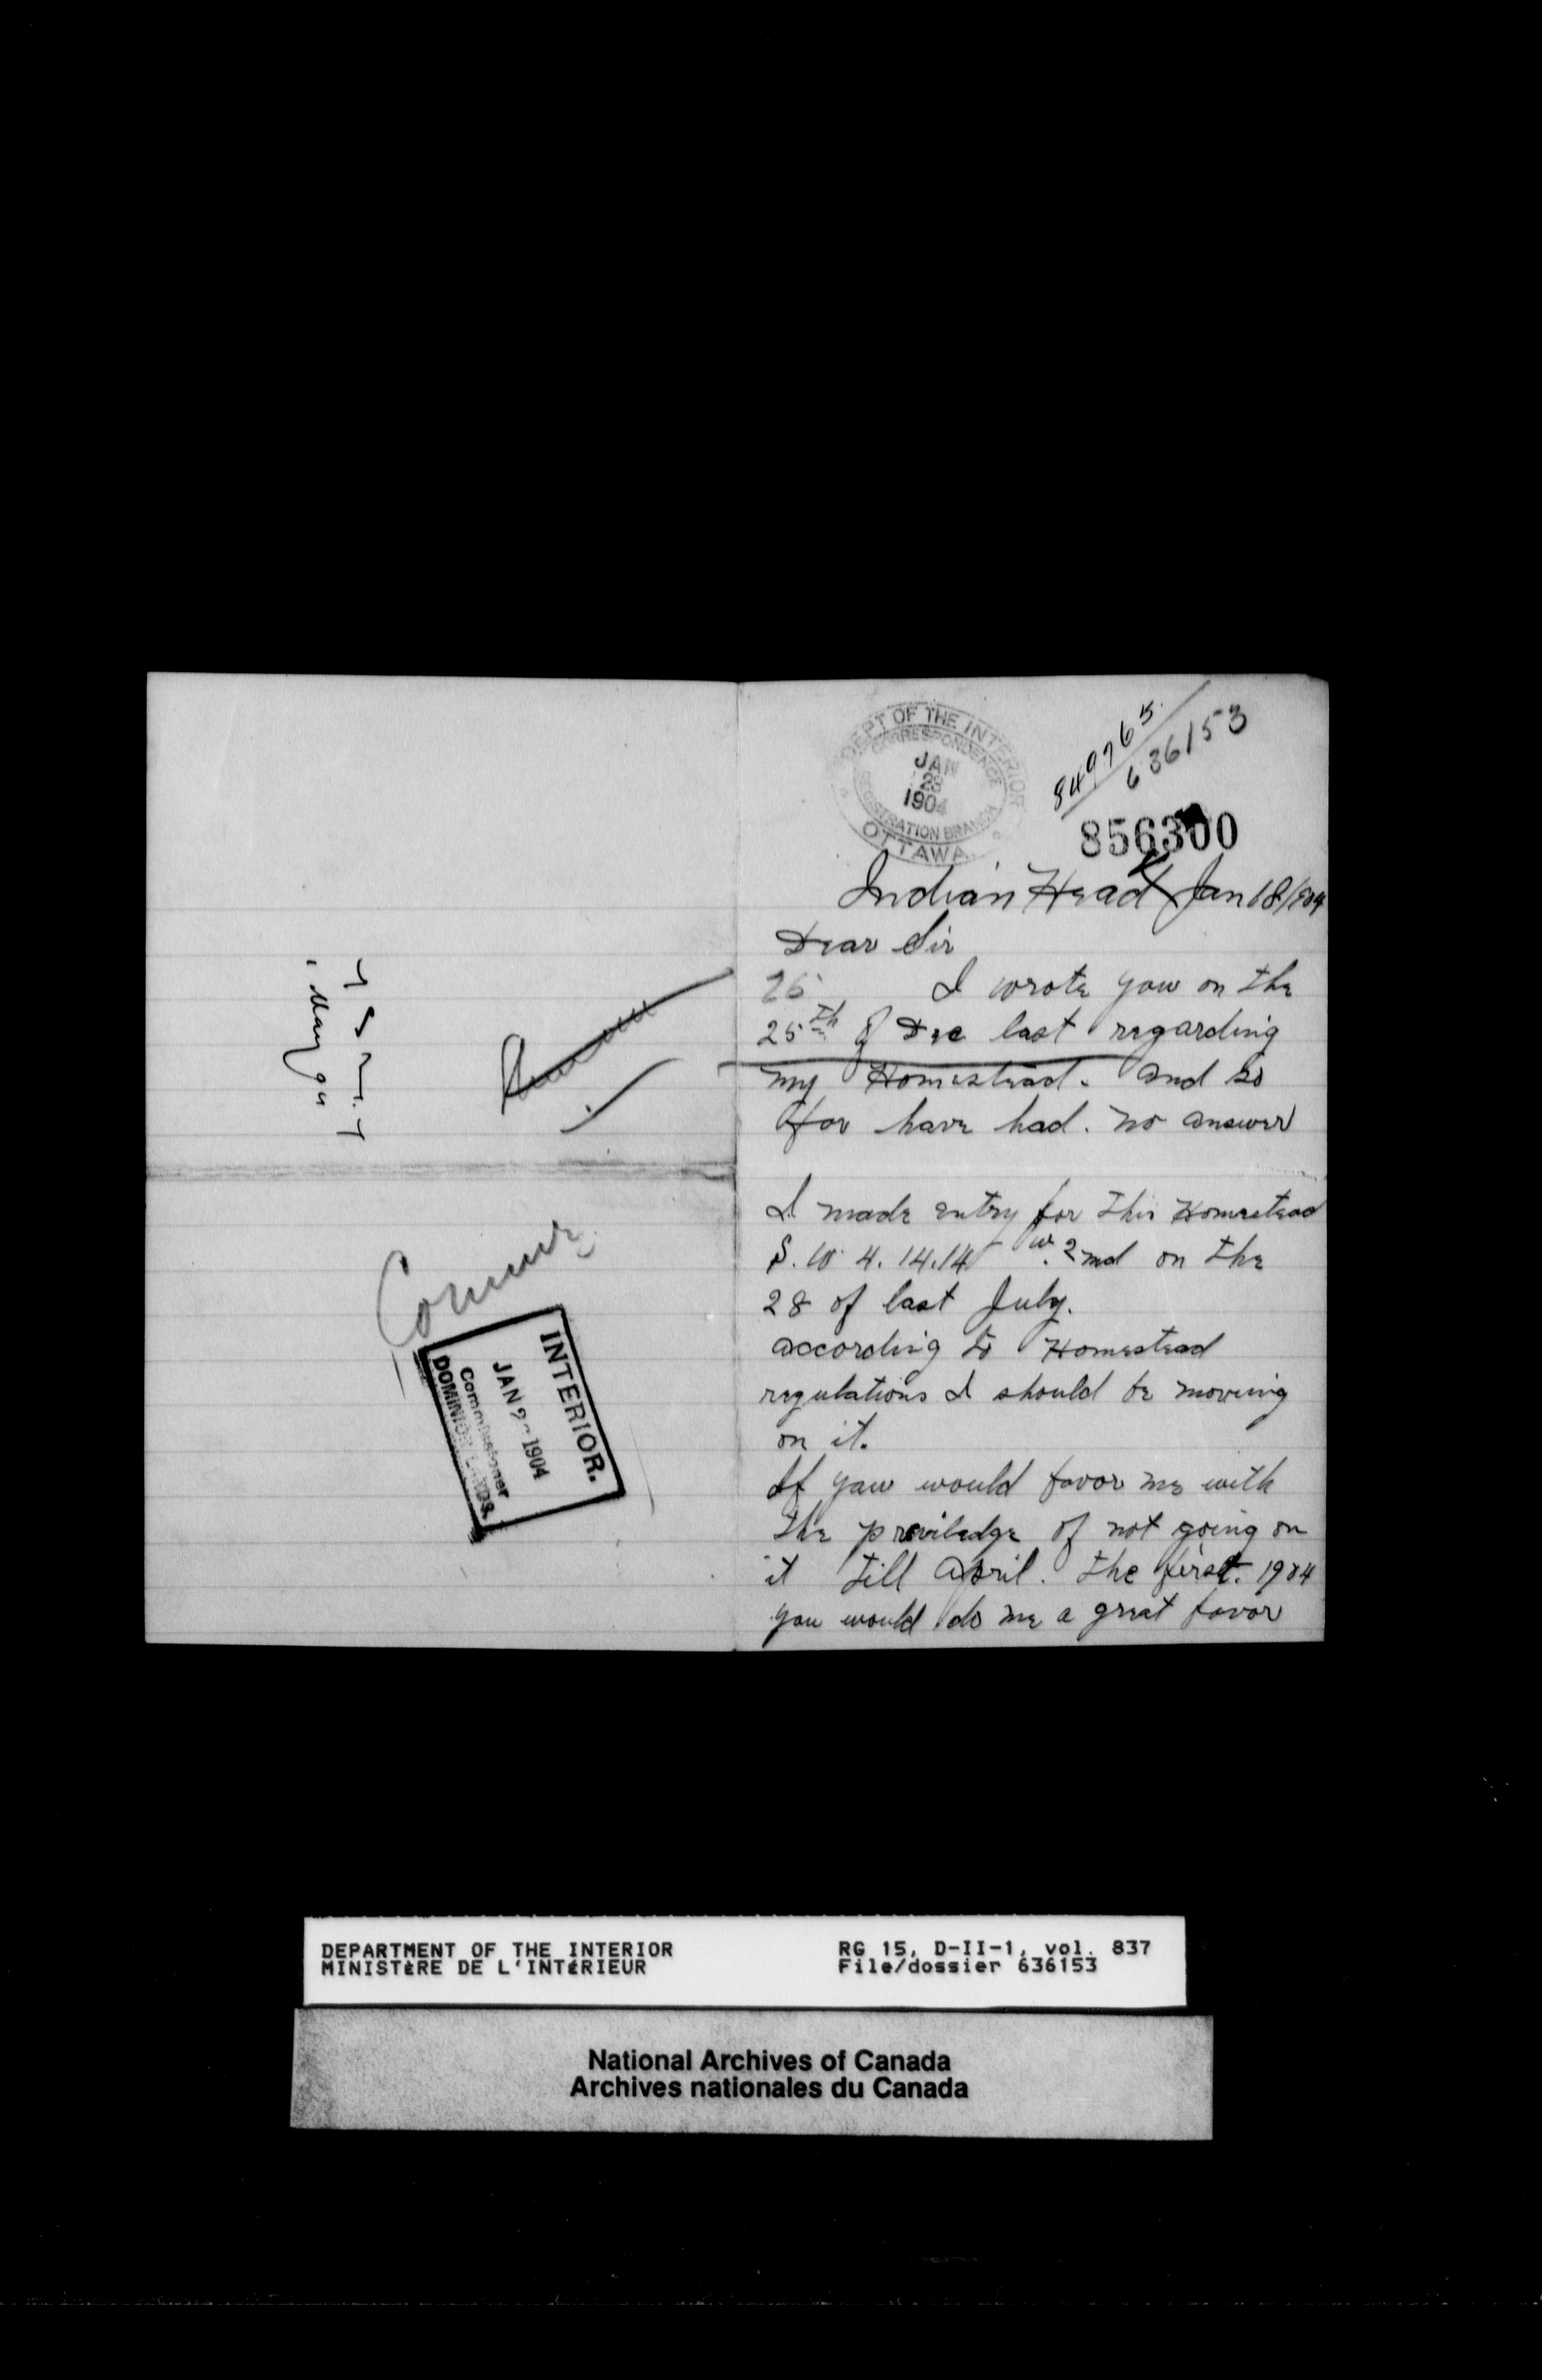 DEPT OF THE INTERIOR
CORRESPONDENCE
JAN
23
1904
REGISTRATION BRANCH
OTTAWA
849765
636153
856300
Indian Head Jan 18/1904
Dear Sir
26 I wrote yow on the
25th of Dec last regarding
my Homestead. and so
far have had. no answer
I made entry for this Homestead
S. W 4. 14.14 W. 2nd on the
28 of last July.
according to Homestead
regulations I should be moving
on it.
If yow would favor me with
the priviledge of not going on
it till April. the first. 1904
you would do me a great favor
May 04
INTERIOR.
JAN 2 1904
Commissioner
DOMINION LANDS.
DEPARTMENT OF THE INTERIOR
MINISTÈRE DE L'INTÉRIEUR
RG 15, D-II-1, vol. 837
File/dossier 636153
National Archives of Canada
Archives nationales du Canada